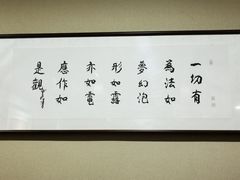 一切有
為法如
夢幻泡
形如露
亦如電
應作如
是觀